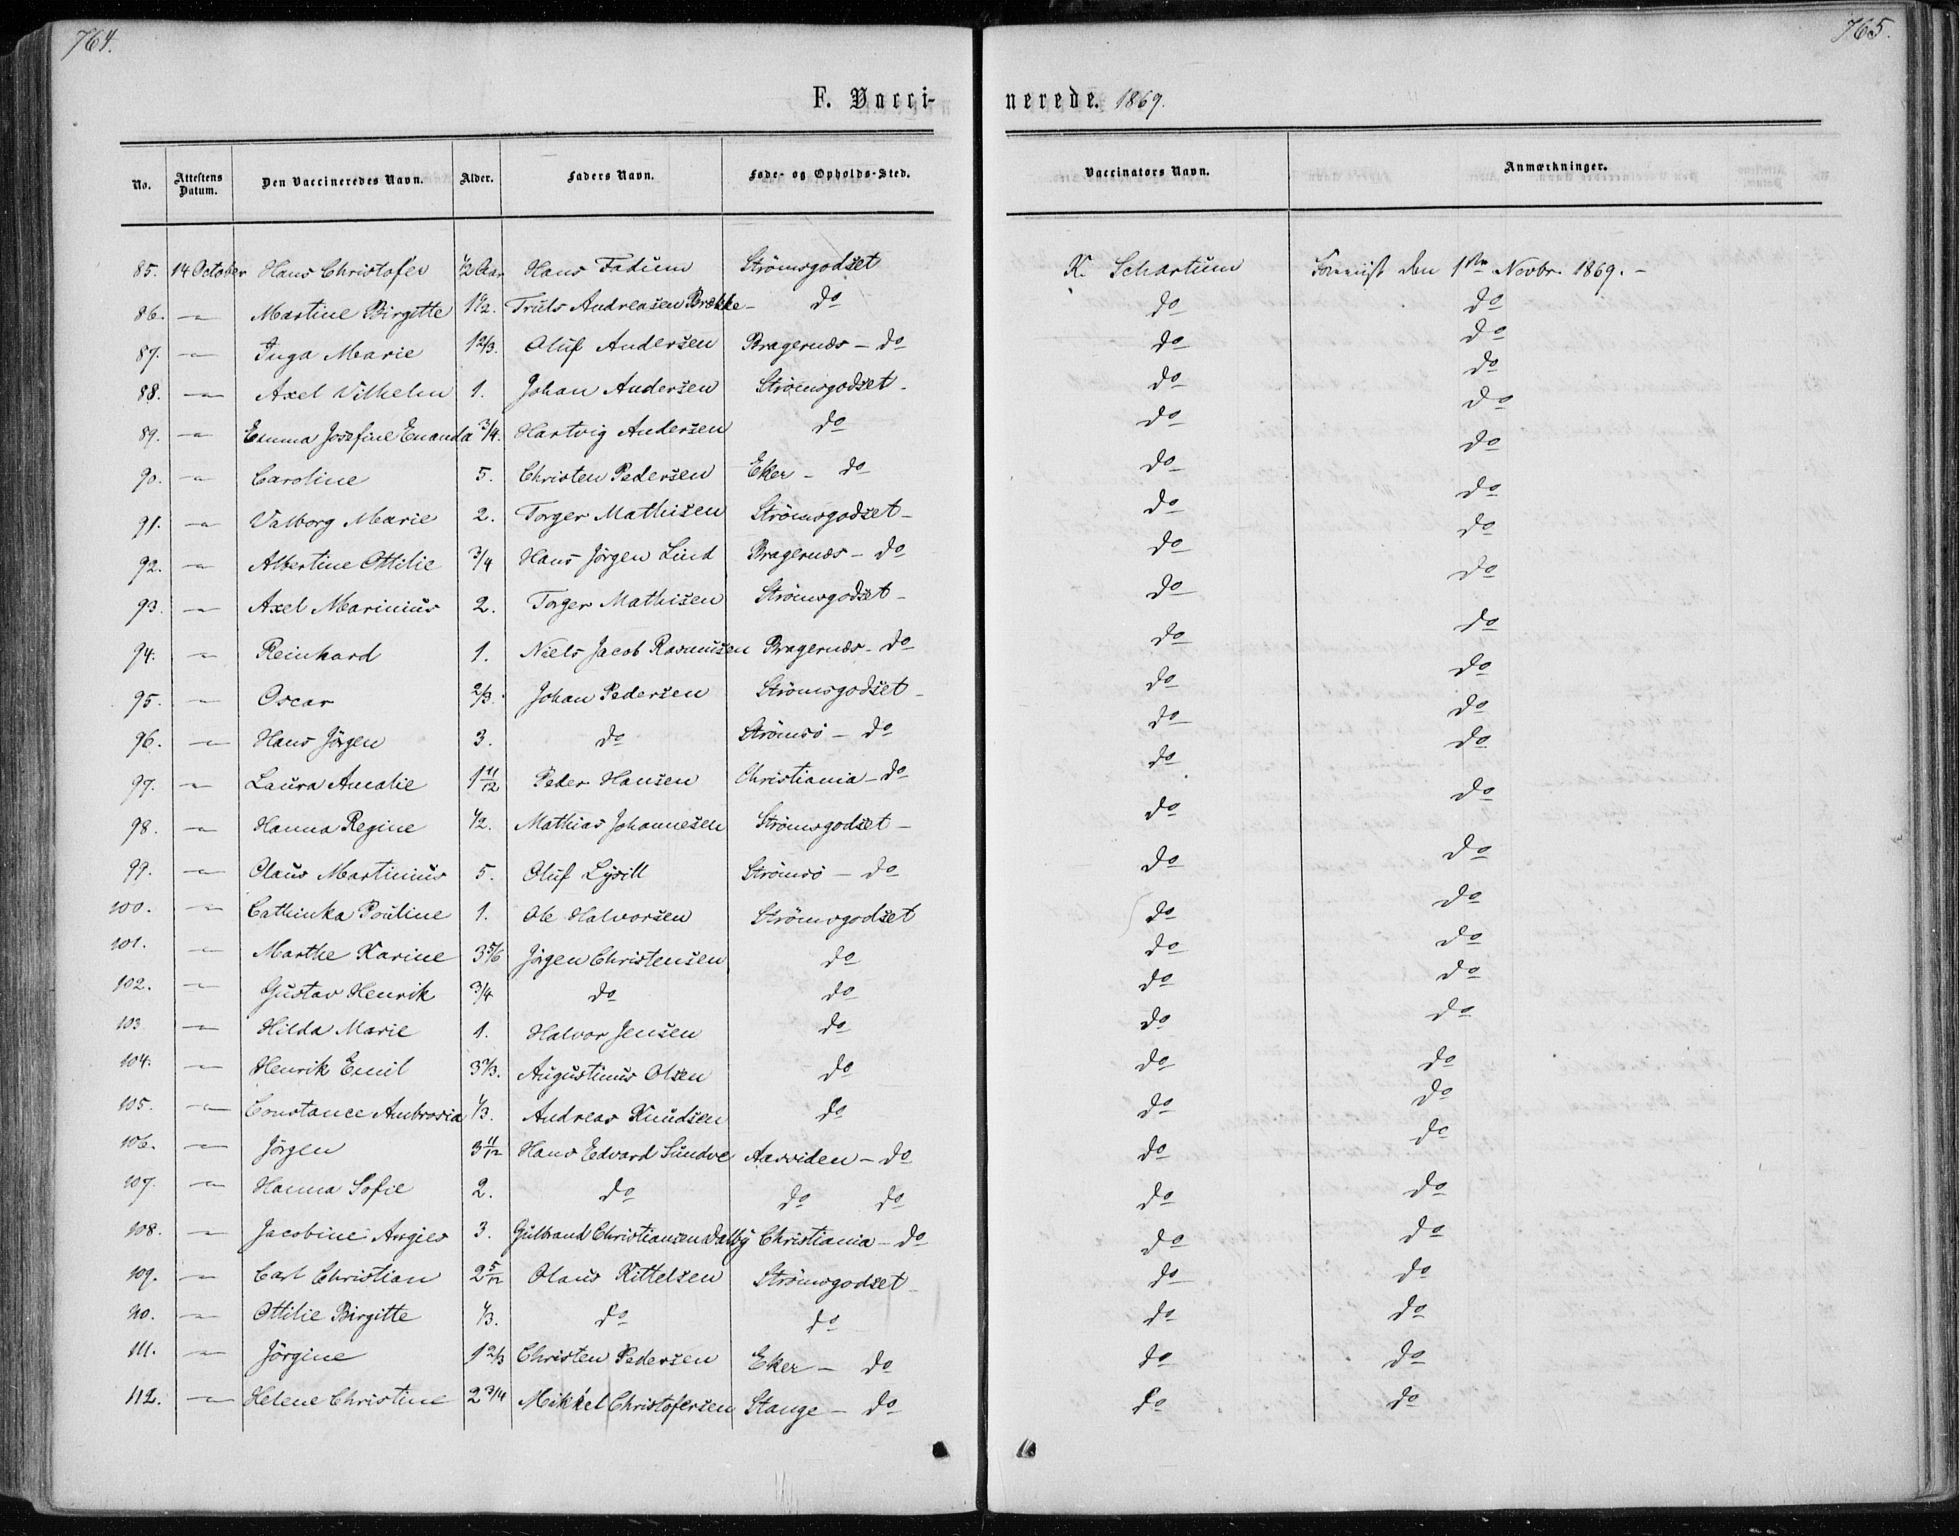 764.
765.
F. Vacci-
nerede. 1869.
No. Attestens Datum. Den Vaccineredes Navn. Alder. Faders Navn. Føde- og Opholds-Sted. Vaccinators Navn. Anmærkninger.
85. 14 October Hans Christofer 1/2 Aar Hans Fadum Strömsgodset K. Schartum den 1ste Novbr. 1869. -
86. -"- Martine Birgitte 1 1/2. Truls Andreasen Brække - do do do
87. -"- Inga Marie 1 2/3. Oluf Andersen Bragernæs - do do do
88. -"- Axel Vilhelm 1. Johan Andersen Strömsgodset - do do
89. -"- Emma Josefine Enanda 3/4. Hartvig Andersen do do do
90. -"- Caroline 5. Christen Pedersen Eker - do do do
91. -"- Valborg Marie 2. Torger Mathisen Strömsgodset - do do
92. -"- Albertine Ottilie 3/4 Hans Jörgen Lind Bragernæs - do do do
93. -"- Axel Marinius 2. Torger Mathisen Strömsgodset - do do
94. -"- Reinhard 1. Niels Jacob Rasmusen Bragernæs - do do do
95. -"- Oscar 2/3. Johan Pedersen Strömsgodset - do do
96. -"- Hans Jörgen 3. do Strömsö - do do do
97. -"- Laura Amalie 1 11/12 Peder Hansen Christiania - do do do
98. -"- Hanna Regine 1/2. Mathias Johannesen Strömsgodset - do do
99. -"- Olaus Martinius 5. Oluf Lysill Strömsö - do do do
100. -"- Cathinka Pouline 1. Ole Halvorsen Strömsgodset do do
101. -"- Marthe Karine 3 5/6 Jörgen Christensen do do do
102. -"- Gustav Henrik 3/4 do do do do
103 -"- Hilda Marie 1. Halvor Jensen do do do
104. -"- Henrik Emil 3 1/3. Augustinus Olsen do do do
105. -"- Constance Ambrosia 1/3. Andreas Knudsen do do do
106. -"- Jörgen 3 11/12 Hans Edvard Sundve Aasviden - do do do
107. -"- Hanna Sofie 2. do do do do do
108. -"- Jacobine Aagies 3. Gulbrand Christiansen Dalby Christiania - do do do
109. -"- Carl Christian 2 5/12 Olaus Kittelsen Strömsgodset - do do
110. -"- Ottilie Birgitte 1/3. do do do do
111. -"- Jörgine 1 2/3 Christen Pedersen Eker - do do do
112. -"- Helene Christine 2 3/4 Mikkel Christofersen Stange - do do do